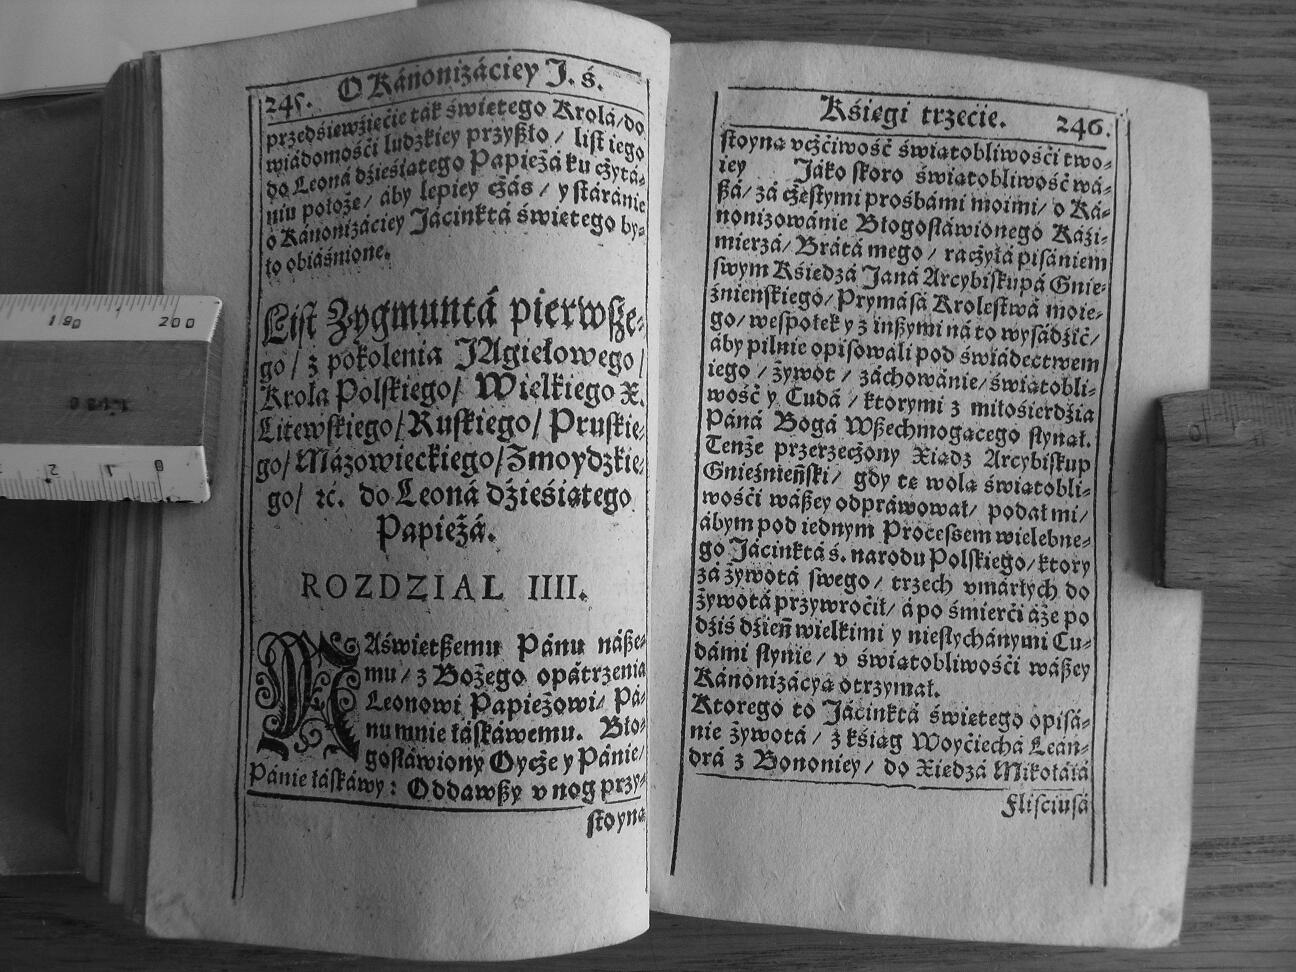 245. O Kánonizáciey J. ś.
przedśiewźięćie ták świętego Krolá/ do
wiádomośći ludzkiey przyszło / list iego
do Leoná dźieśiątego Papieżá ku czytá-
niu położę / áby lepiey czás / y stáránie
o Kánonizáciey Jácinktá świętego by-
ło obiáśnione.
List Zygmuntá pierwsze-
go / z pokolenia JAgiełowego /
Krolá Polskiego / Wielkiego X.
Litewskiego / Ruskiego / Pruskie-
go / Mázowieckiego / Zmoydzkie-
go / ꝛć. do Leoná dźieśiątego
Papieżá.
ROZDZIAL IIII.
NAświętszemu Pánu násze-
mu / z Bożego opátrzenia
Leonowi Papieżowi / Pá-
nu mnie łáskáwemu. Bło-
gosłáwiony Oycze y Pánie /
Pánie łáskáwy : Oddawszy v nog przy-
stoyną
Kśięgi trzećie. 246.
stoyną vczćiwość świątobliwośći two-
iey Jáko skoro świątobliwość wá-
szá / zá częstymi proźbámi moimi / o Ká-
nonizowánie Błogosłáwionego Káźi-
mierzá / Brátá mego / raczyłá pisániem
swym Kśiędzá Janá Arcybiskupá Gnie-
źnienskiego / Prymásá Krolestwá moie-
go / wespołek y z inszymi ná to wysádźić /
áby pilnie opisowáli pod świádectwem
iego / żywot / záchowánie / świątobli-
wość y Cudá / ktorymi z miłośierdźia
Páná Bogá Wszechmogącego słynął.
Tenże przerzeczony Xiądz Arcybiskup
Gnieźnieński / gdy tę wolą świątobli-
wośći wászey odpráwował / podał mi /
ábym pod iednym Processem wielebne-
go Jácinktá ś. narodu Polskiego / ktory
zá żywotá swego / trzech vmárłych do
żywotá przywroćił / á po śmierći áże po
dźiś dźień wielkimi y niesłychánymi Cu-
dámi słynie / v świątobliwośći wászey
Kánonizácyą otrzymał.
Ktorego to Jácinktá świętego opisá-
nie żywotá / z kśiąg Woyćiechá Leán-
drá z Bononiey / do Xiędzá Mikołáiá
Flisciusá
190 200
2 1 0